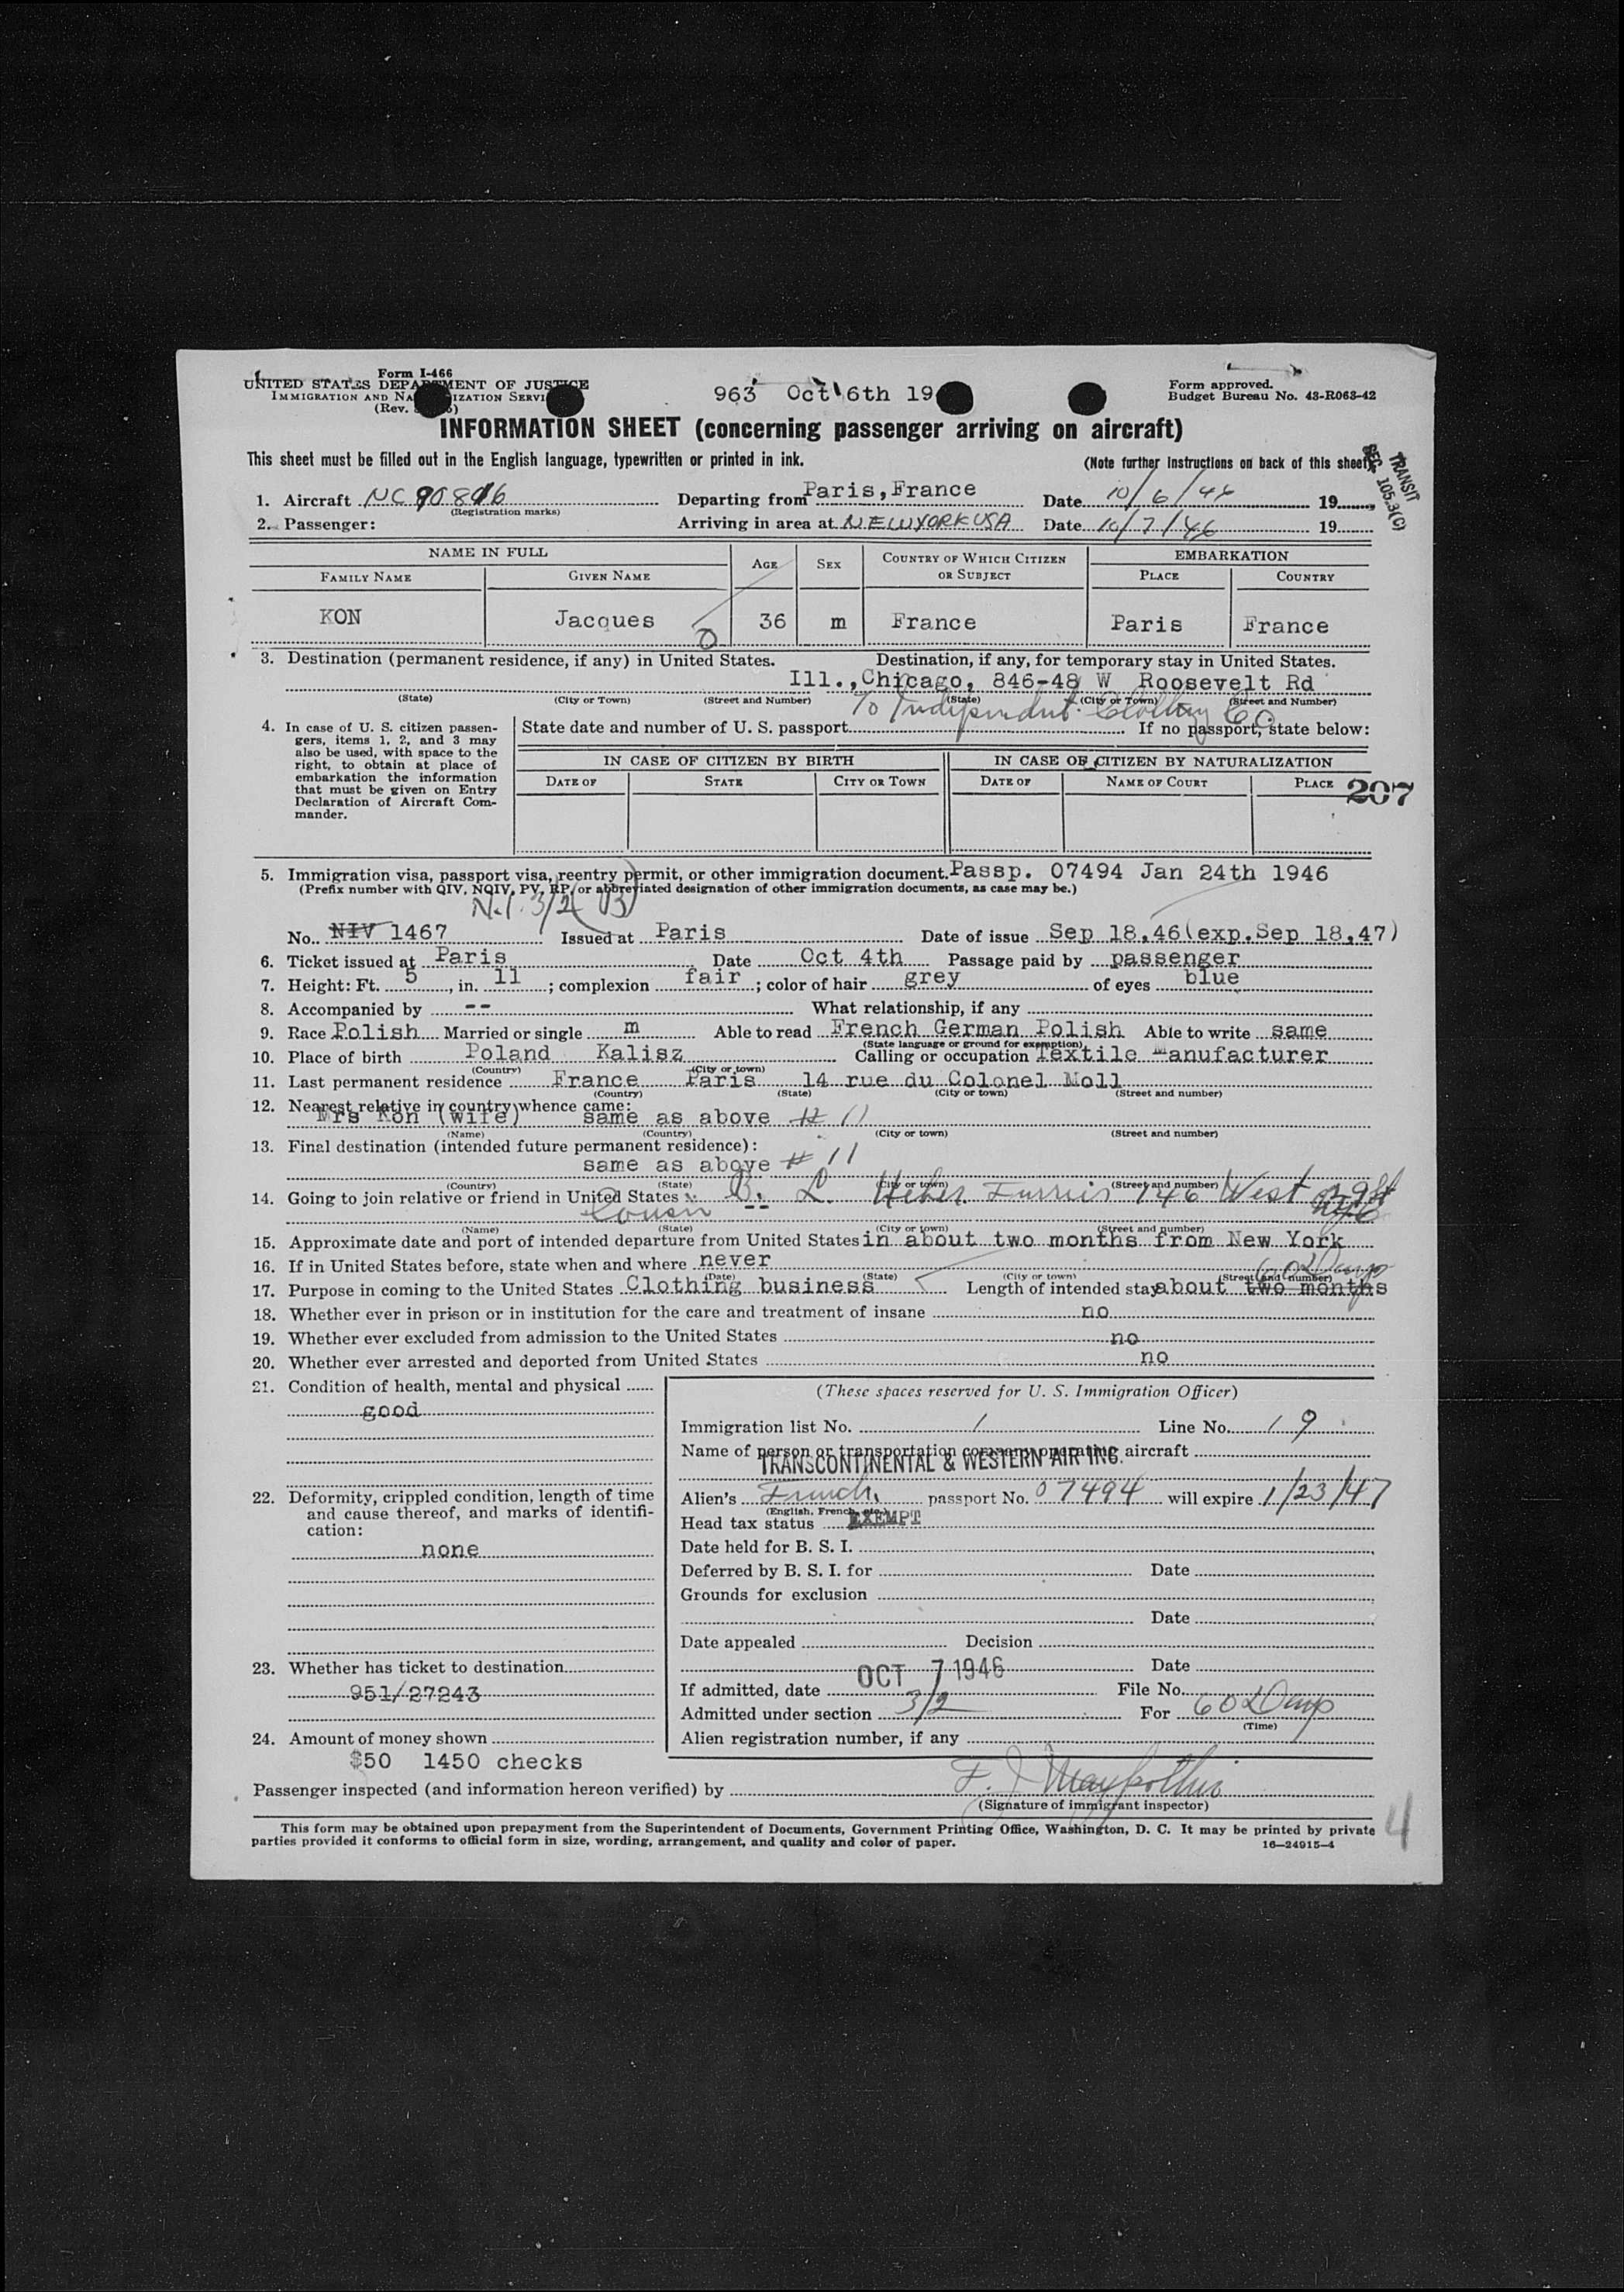 Form I-466
UNITED STATES DEPARTMENT OF JUSTICE
IMMIGRATION AND NATURALIZATION SERVICE
(Rev.
963 Oct 6th 19
Form approved.
Budget Bureau No. 43-R063-42
INFORMATION SHEET (concerning passenger arriving on aircraft)
This sheet must be filled out in the English language, typewritten or printed in ink.
(Note further instructions on back of this sheet)
TRANSIT
SEC 105.3(C)
1. Aircraft Departing from Paris, France Date 10/6/46 19
(Registration marks)
2. Passenger: Arriving in area at NEWYORK USA Date 10/7/46 19
NAME IN FULL AGE SEX COUNTRY OF WHICH CITIZEN OR SUBJECT EMBARKATION
FAMILY NAME GIVEN NAME PLACE COUNTRY
KON Jacques 36 m France Paris France
3. Destination (permanent residence, if any) in United States. Destination, if any, for temporary stay in United States.
Ill., Chicago, 846-48 W Roosevelt Rd
(State) (City or Town) (Street and Number) (State) (City or Town) (Street and Number)
To Independent Clothing Co
4. In case of U. S. citizen passengers, items 1, 2, and 3 may also be used, with space to the right, to obtain at place of embarkation the information that must be given on Entry Declaration of Aircraft Commander.
State date and number of U. S. passport If no passport, state below:
IN CASE OF CITIZEN BY BIRTH IN CASE OF CITIZEN BY NATURALIZATION
DATE OF STATE CITY OR TOWN DATE OF NAME OF COURT PLACE
207
5. Immigration visa, passport visa, reentry permit, or other immigration document. Passp. 07494 Jan 24th 1946
(Prefix number with QIV, NQIV, PV, RP, or abbreviated designation of other immigration documents, as case may be.)
N.I. 3/2 (B)
No. NIV 1467 Issued at Paris Date of issue Sep 18,46(exp.Sep 18,47)
6. Ticket issued at Paris Date Oct 4th Passage paid by passenger
7. Height: Ft. 5, in. 11; complexion fair; color of hair grey of eyes blue
8. Accompanied by -- What relationship, if any
9. Race Polish Married or single m Able to read French German Polish Able to write same
(State language or ground for exemption)
10. Place of birth Poland Kalisz Calling or occupation Textile Manufacturer
(Country) (City or town)
11. Last permanent residence France Paris 14 rue du Colonel Moll
(Country) (State) (City or town) (Street and number)
12. Nearest relative in country whence came:
Mrs Kon (wife) same as above # 11
(Name) (Country) (City or town) (Street and number)
13. Final destination (intended future permanent residence):
same as above # 11
(Country) (State) (City or town) (Street and number)
14. Going to join relative or friend in United States B. L. 146 West 29 St
Cousin -- NYC
(Name) (State) (City or town) (Street and number)
15. Approximate date and port of intended departure from United States in about two months from New York
16. If in United States before, state when and where never
(Date) (State) (City or town) (Street and number)
60 Days
17. Purpose in coming to the United States Clothing business Length of intended stay about two months
18. Whether ever in prison or in institution for the care and treatment of insane no
19. Whether ever excluded from admission to the United States no
20. Whether ever arrested and deported from United States no
21. Condition of health, mental and physical
good
22. Deformity, crippled condition, length of time and cause thereof, and marks of identification:
none
23. Whether has ticket to destination
951/27243
24. Amount of money shown
$50 1450 checks
(These spaces reserved for U. S. Immigration Officer)
Immigration list No. 1 Line No. 19
Name of person or transportation company operating aircraft
TRANSCONTINENTAL & WESTERN AIR INC.
Alien's French passport No. 07494 will expire 1/23/47
(English, French, etc.)
Head tax status EXEMPT
Date held for B. S. I.
Deferred by B. S. I. for Date
Grounds for exclusion
Date
Date appealed Decision
Date
OCT 7 1946
If admitted, date File No.
Admitted under section 3/2 For 60 Days
(Time)
Alien registration number, if any
Passenger inspected (and information hereon verified) by F. J.
(Signature of immigrant inspector)
This form may be obtained upon prepayment from the Superintendent of Documents, Government Printing Office, Washington, D. C. It may be printed by private
parties provided it conforms to official form in size, wording, arrangement, and quality and color of paper. 16—24915-4
4